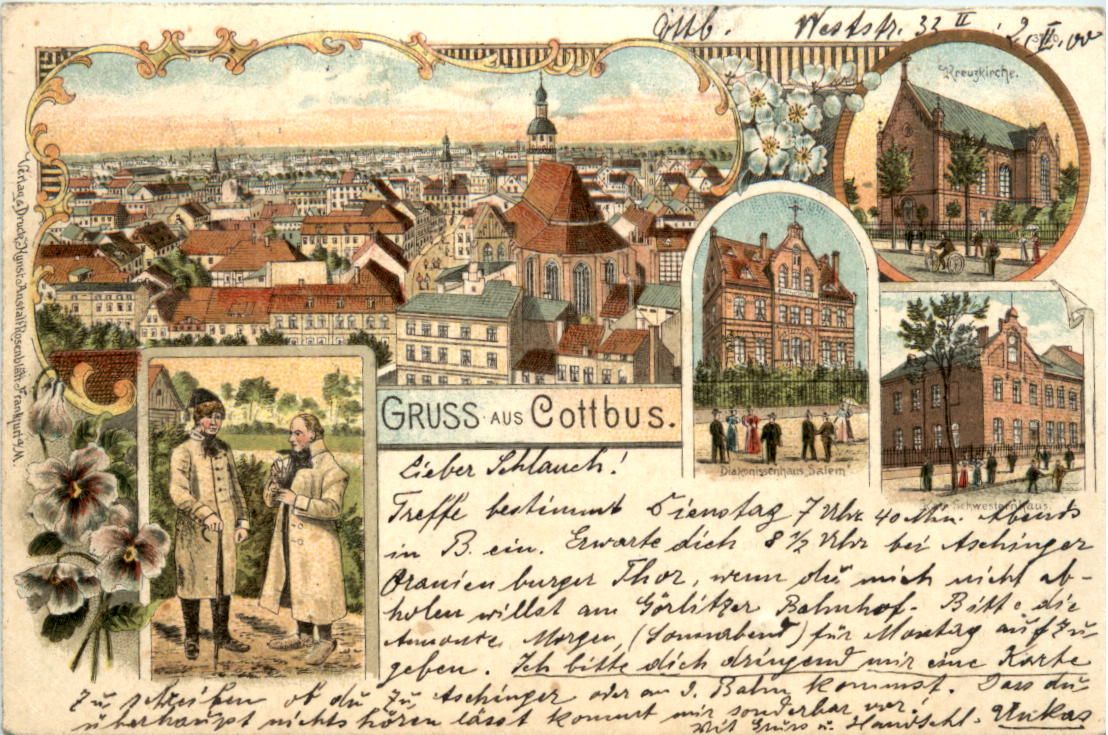 Cttb. Weststr. 33 II 2. II. 00
Kreuzkirche.
Verlag u. Druck: Kunst-Anstalt Rosenblatt Frankfurt a/M.
GRUSS AUS Cottbus.
Diakonissenhaus „Salem"
Schwesternhaus.
Lieber Schlauch!
Treffe bestimmt Dienstag 7 Uhr 40 Min. Abends
in B. ein. Erwarte dich 8 1/2 Uhr bei Aschinger
Oranienburger Thor, wenn du mich nicht ab-
holen willst am Görlitzer Bahnhof. Bitte die
Annonce Morgen, (Sonnabend) für Montag aufzu-
geben. Ich bitte dich dringend mir eine Karte
zu schreiben ob du zu Aschinger oder an d. Bahn kommst. Dass du
überhaupt nichts hören lässt kommt mir sonderbar vor!
Mit Gruss u. Handschl.